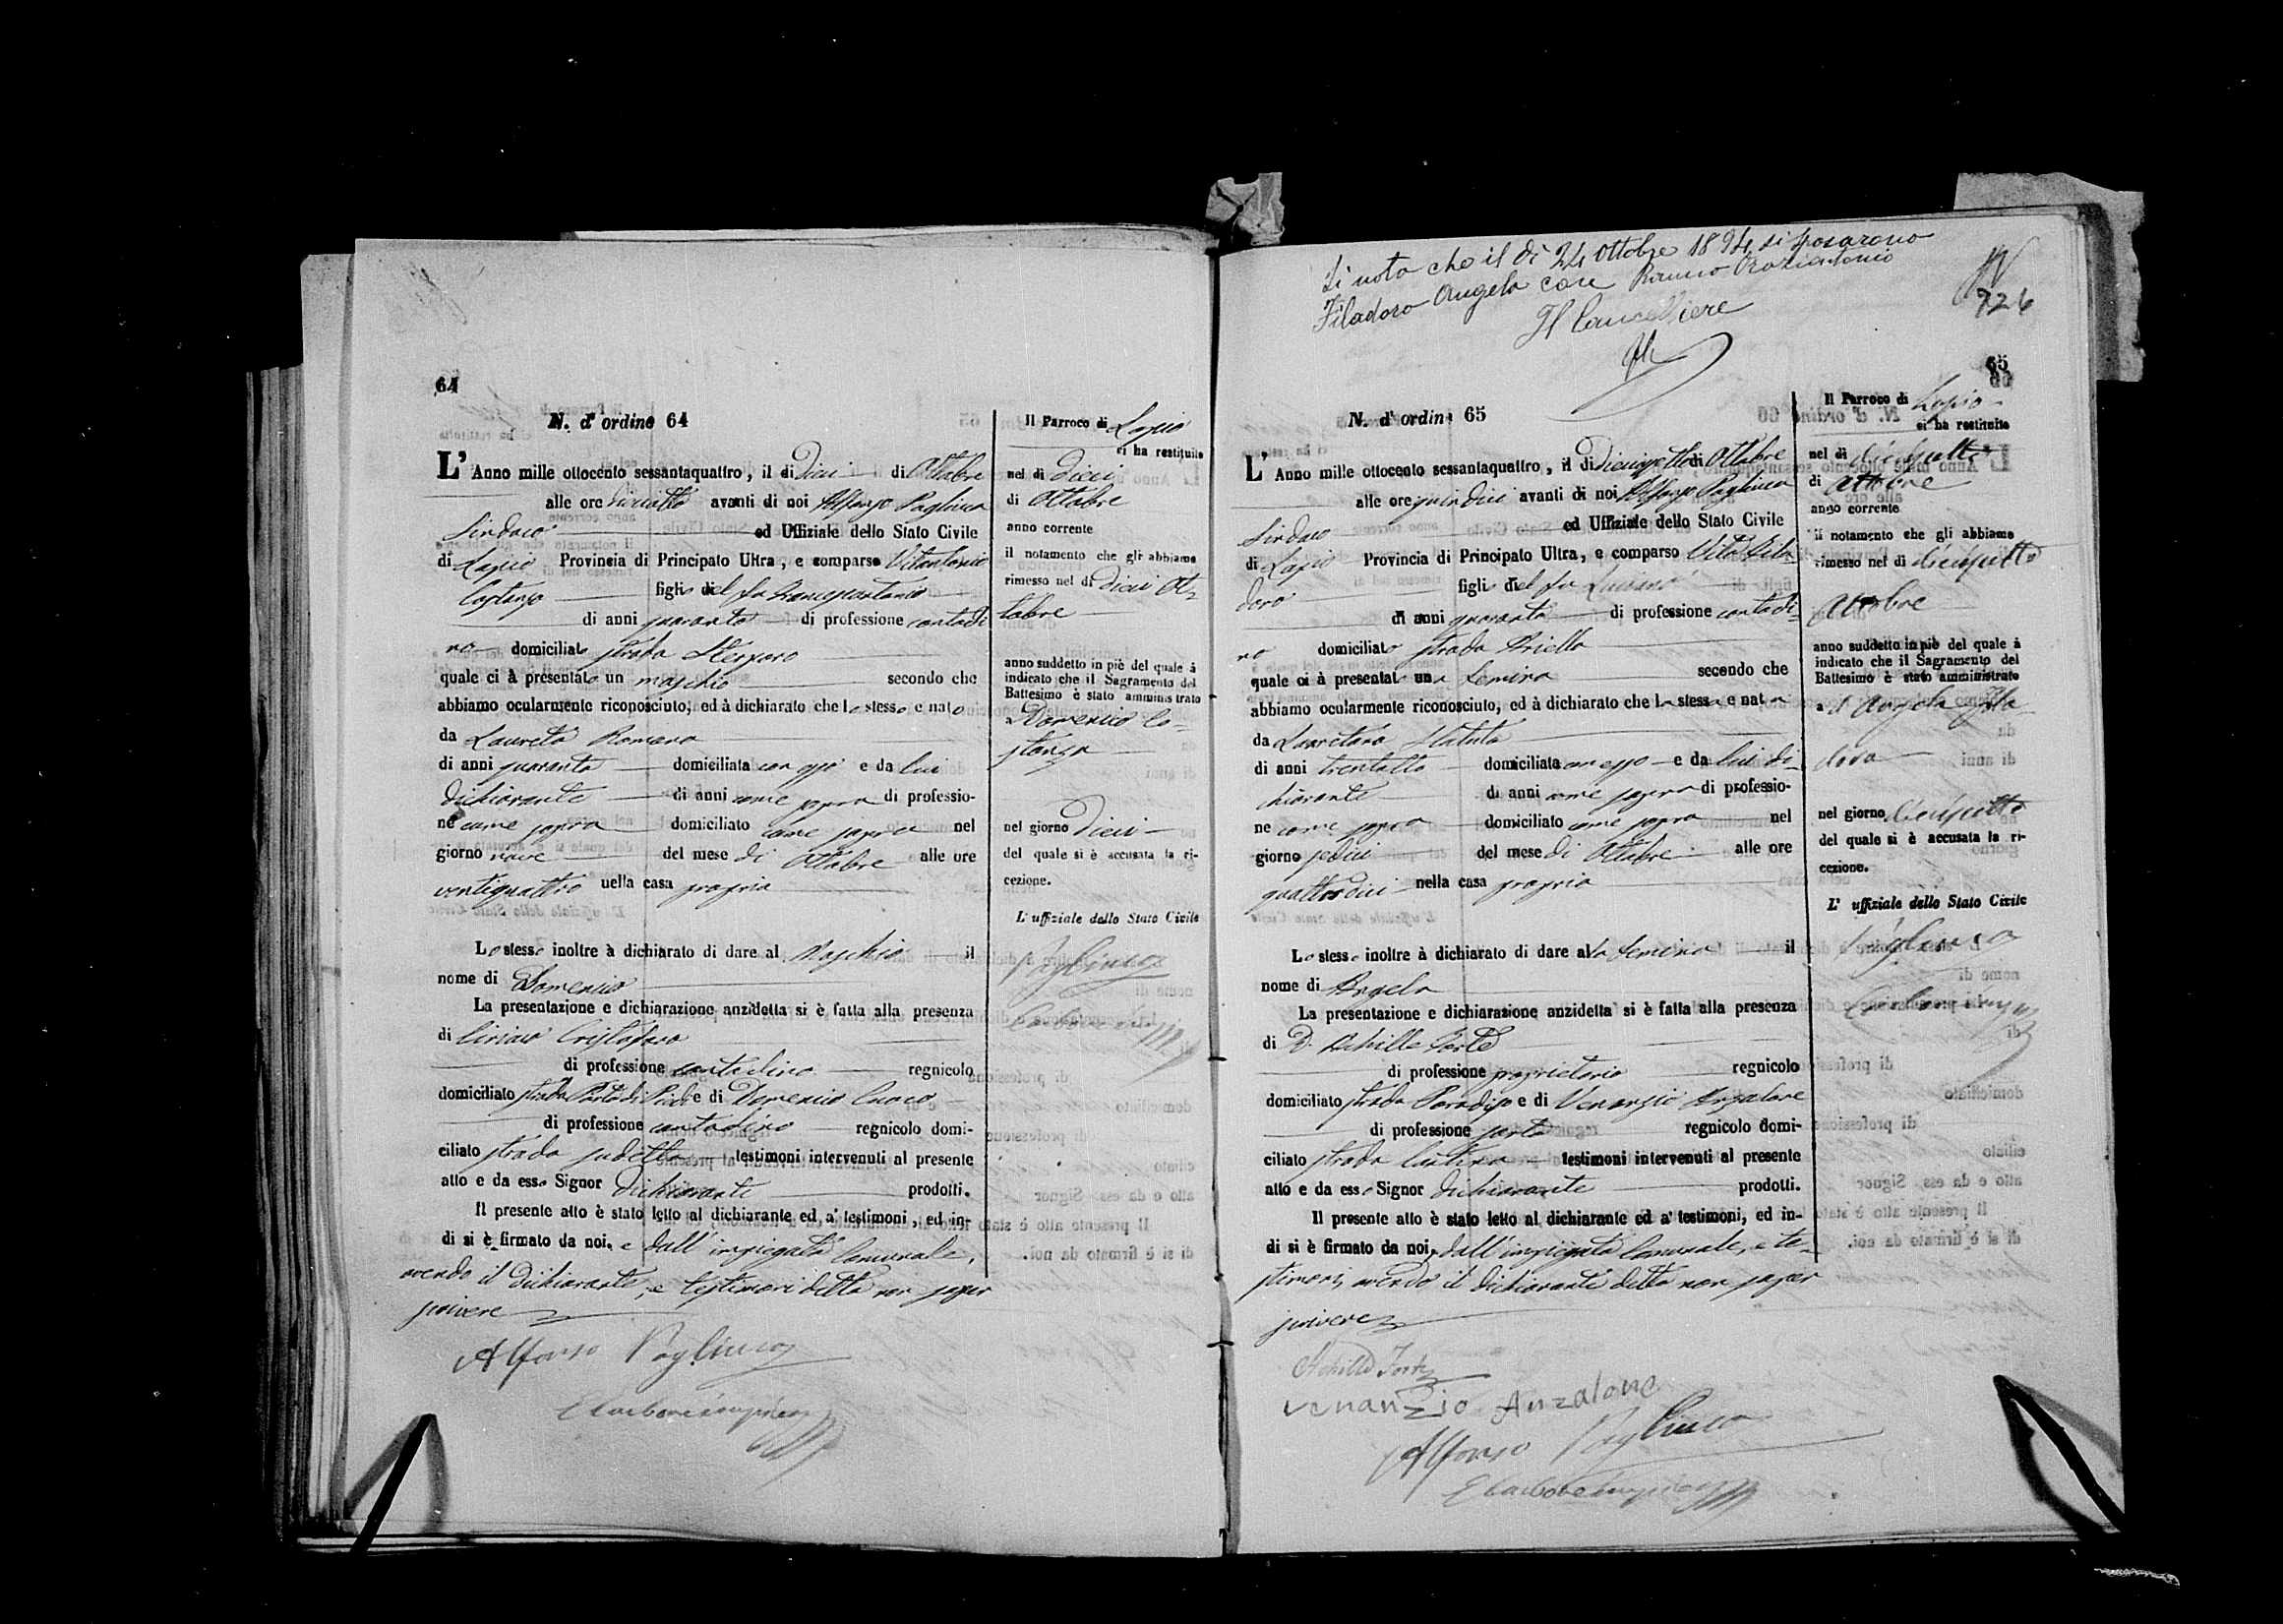 64
N. d'ordine 64
L'Anno mille ottocento sessantaquattro, il di Dieci di Ottobre
alle ore diciotto avanti di noi Alfonzo Pagliuca
Sindaco ed Uffiziale dello Stato Civile
di Lapio Provincia di Principato Ultra, e comparso Vitantonio
Costanzo figlio del fu
di anni quaranta di professione contadi
no domiciliato strada
quale ci à presentato un maschio secondo che
abbiamo ocularmente riconosciuto, ed à dichiarato che lo stesso e nato
da Laureta Romano
di anni quaranta domiciliata con e da lui
dichiarante di anni come sopra di professio-
ne come sopra domiciliato come sopra nel
giorno nove del mese di Ottobre alle ore
ventiquattro nella casa propria
Lo stesso inoltre à dichiarato di dare al Maschio il
nome di Domenico
La presentazione e dichiarazione anzidetta si è fatta alla presenza
di Ciriaco Cristofaro
di professione contadino regnicolo
domiciliato strada e di Domenico Cuoco
di professione contadino regnicolo domi-
ciliato strada testimoni intervenuti al presente
atto e da esso Signor dichiarante prodotti.
Il presente atto è stato letto al dichiarante ed a' testimoni, ed in-
di si è firmato da noi, e dall'impiegato Comunale,
avendo il dichiarante, e testimoni detto non saper
scrivere
Alfonso Pagliuca
Il Parroco di Lapio
ci ha restituito
nel di dieci
di Ottobre
anno corrente
il notamento che gli abbiamo
rimesso nel di dieci Ot
tobre
anno suddetto in piè del quale à
indicato che il Sagramento del
Battesimo è stato amministrato
a Domenico Co-
stanzo
nel giorno dieci
del quale si è accusata la ri-
cezione.
L'uffiziale dello Stato Civile
Pagliuca
Si nota che il dì 24 Ottobre 1894 si sposarono
Filadoro Angela con Oraziantonio
Il Cancelliere
726
65
N. d'ordine 65
L'Anno mille ottocento sessantaquattro, il di Diciassette di Ottobre
alle ore quindici avanti di noi Alfonzo Pagliuca
Sindaco ed Uffiziale dello Stato Civile
di Lapio Provincia di Principato Ultra, e comparso Vito Fila
doro figlio del fu
di anni quaranta di professione contadi-
no domiciliato strada Ariella
quale ci à presentato una Femina secondo che
abbiamo ocularmente riconosciuto, ed à dichiarato che la stessa e nata
da Lauretana Statuto
di anni trentotto domiciliata con esso e da lui di-
chiarante di anni come sopra di professio-
ne come sopra domiciliato come sopra nel
giorno sedici del mese di Ottobre alle ore
quattordici nella casa propria
Lo stesso inoltre à dichiarato di dare alla Femina il
nome di Angela
La presentazione e dichiarazione anzidetta si è fatta alla presenza
di D. Achille Forte
di professione proprietario regnicolo
domiciliato strada Paradiso e di Venanzio Anzalone
di professione sarto regnicolo domi-
ciliato strada testimoni intervenuti al presente
atto e da esso Signor dichiarante prodotti.
Il presente atto è stato letto al dichiarante ed a' testimoni, ed in-
di si è firmato da noi, dall'impiegato Comunale, e te-
stimoni, avendo il dichiarante detto non saper
scrivere
Achille Forte
Venanzio Anzalone
Alfonso Pagliuca
Il Parroco di Lapio
ci ha restituito
nel di diciassette
di Ottobre
anno corrente
il notamento che gli abbiamo
rimesso nel di diciassette
Ottobre
anno suddetto in piè del quale à
indicato che il Sagramento del
Battesimo è stato amministrato
a Angela Fila-
doro
nel giorno diciassette
del quale si è accusata la ri-
cezione.
L'uffiziale dello Stato Civile
Pagliuca